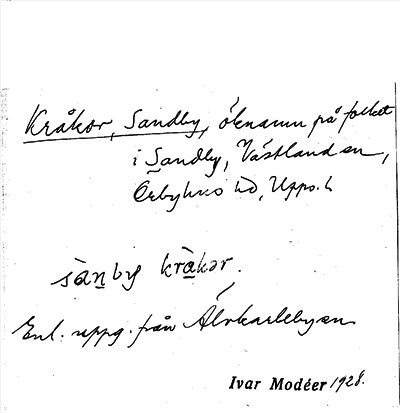 Kråkor, Sandby, öknamn på folket
i Sandby, Västland sn,
Örbyhus hd, Upps. l.
sànby kràkər.
Enl. uppg. från Älvkarleby sn
Ivar Modéer 1928.